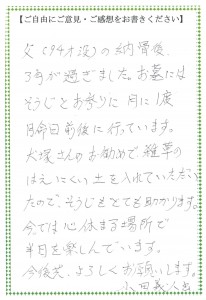 【ご自由にご意見・ご感想をお書きください】
父(94才没)の納骨後、
3年が過ぎました。お墓には
そうじとお参りに月に1度
月命日前後に行っています。
大塚さんのお勧めで、雑草の
はえにくい土を入れていただい
たので、そうじもとても助かります。
今では心休まる場所で
半日を楽しんでいます。
今後共、よろしくお願いします。